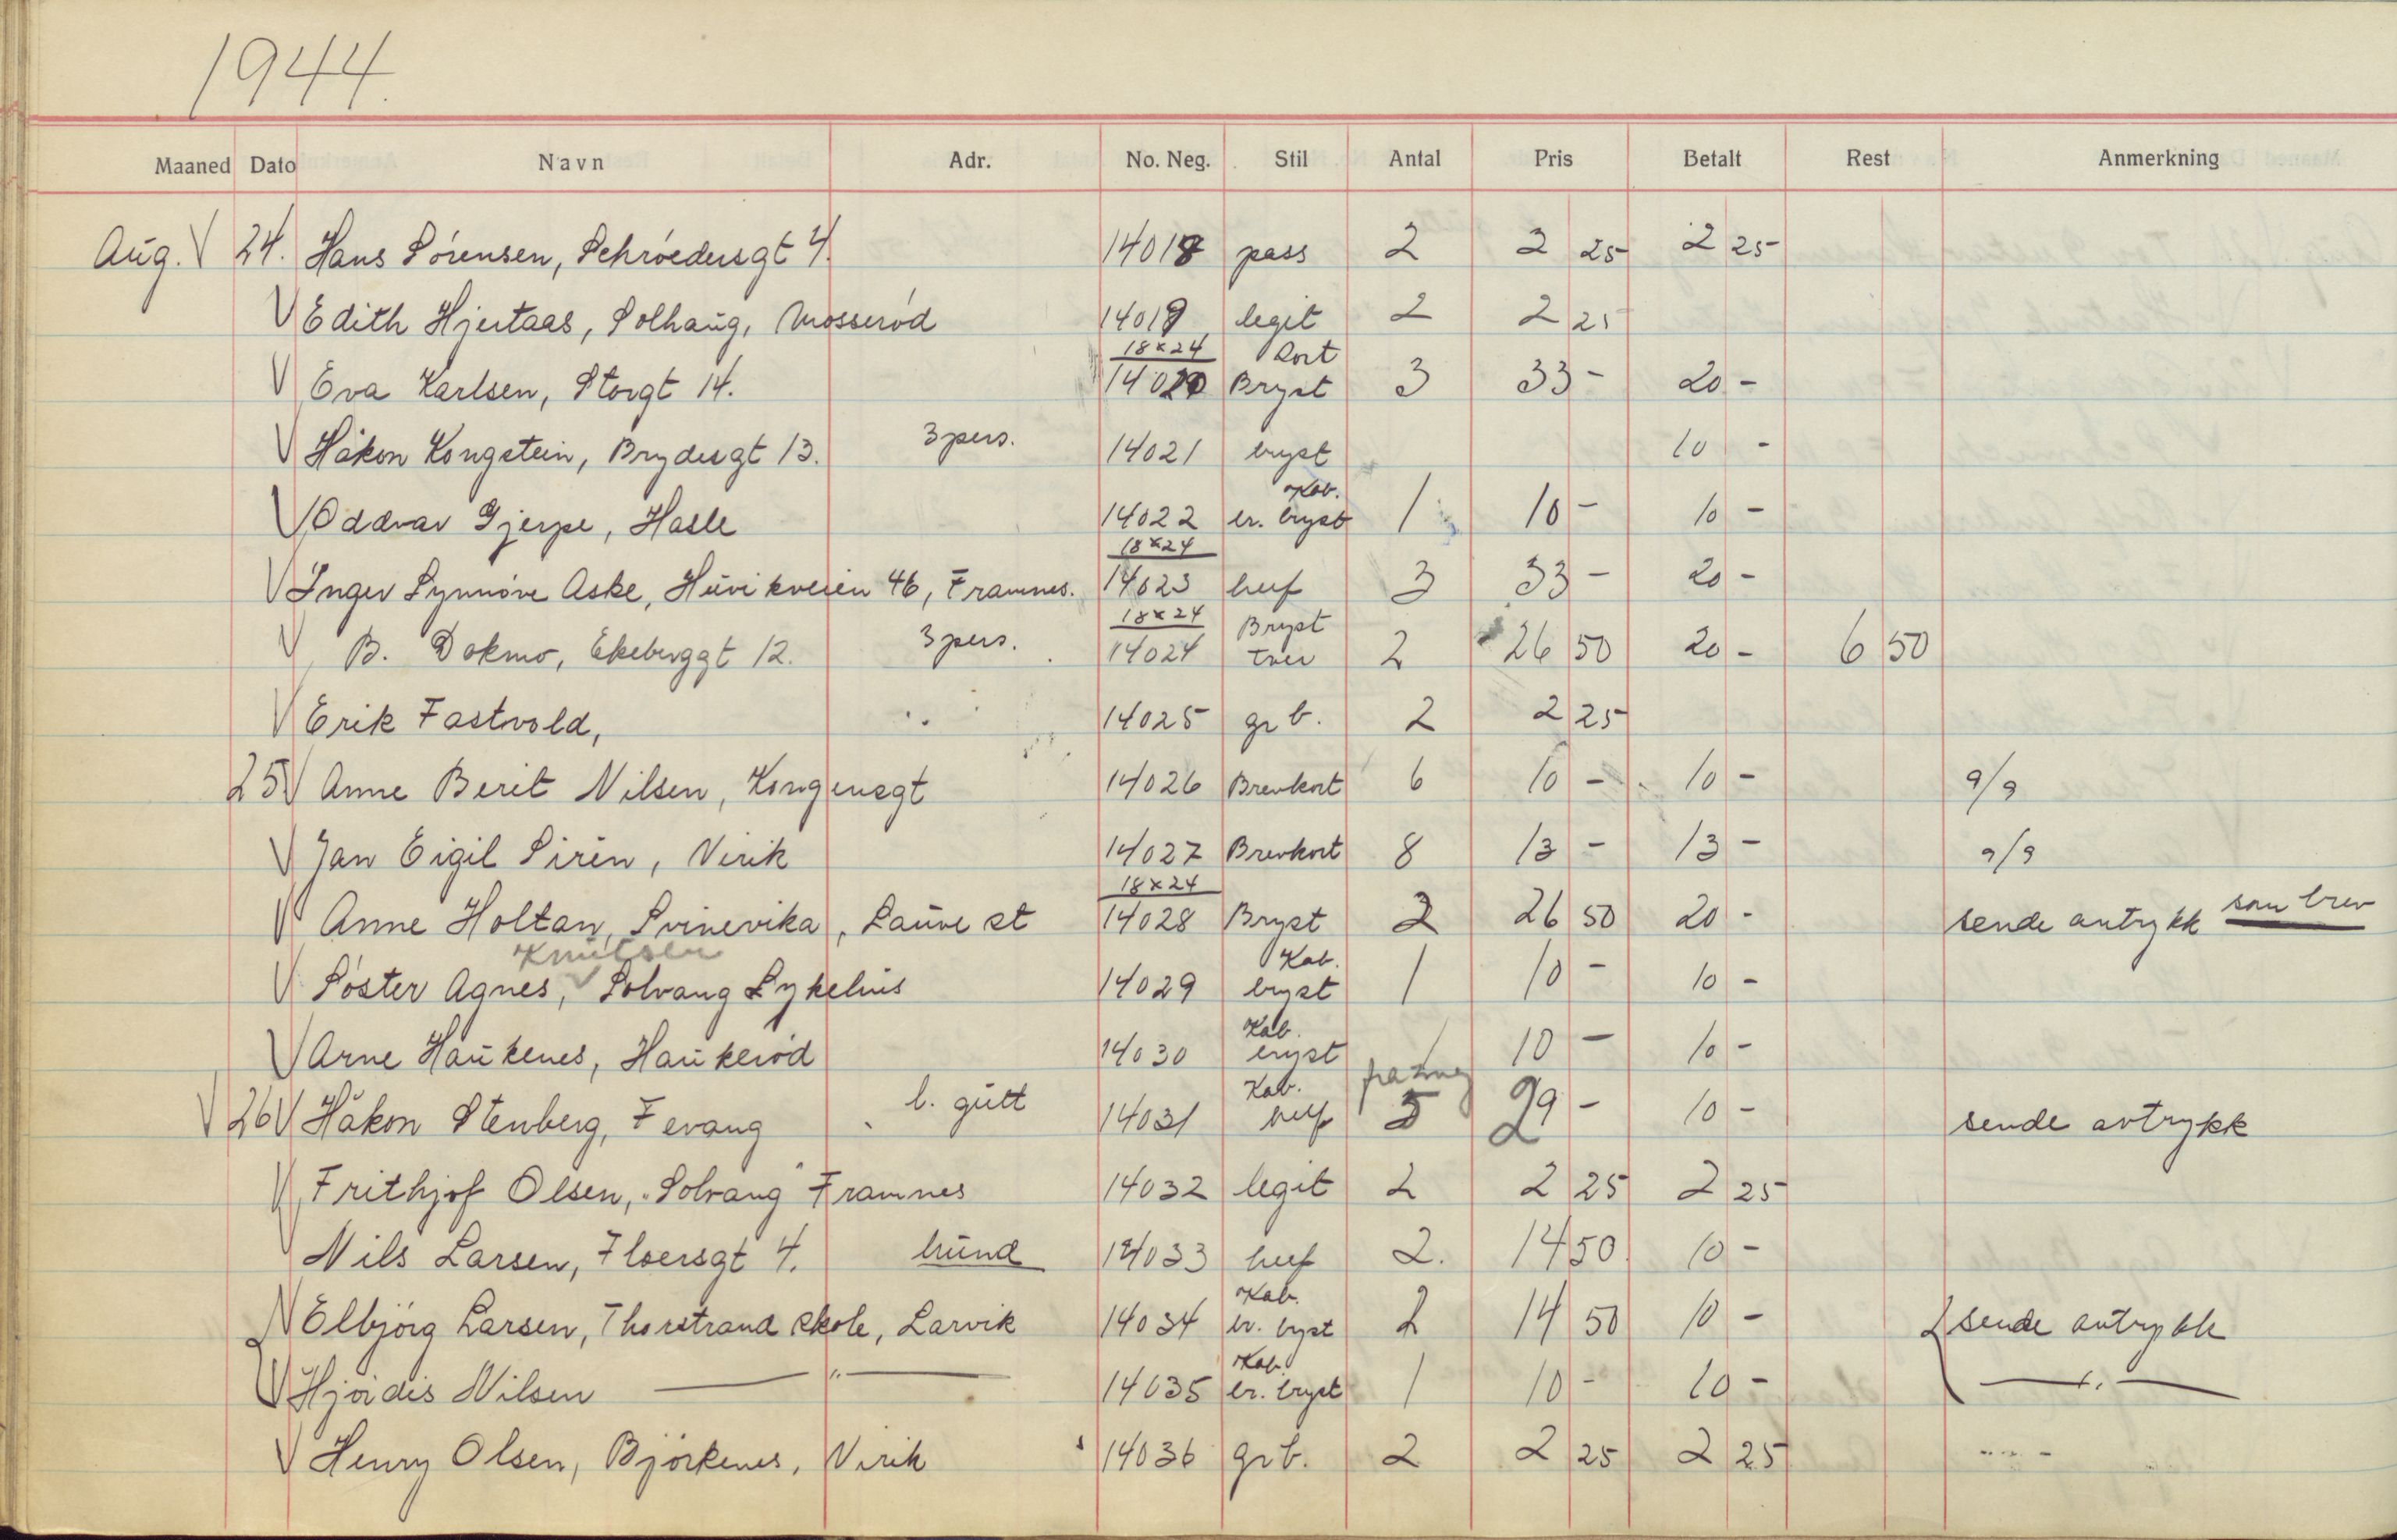 1944.
Maaned Dato Navn Adr. No. Neg. Stil Antal Pris Betalt Rest Anmerkning
Aug. V 24. Hans Sörensen, Schröedersgt 4. 14018 pass 2 2 25 2 25
V Edith Hjertaas, Solhaug, Mosseröd 14019 legit 2 2 25
18x24 Kort
V Eva Karlsen, Storgt 14. 14020 Bryst 3 33 - 20 -
V Håkon Kongstein, Brydesgt 13. 3 pers. 14021 bryst 10 -
Kab.
V Oddvar Gjerpe, Hasle 14022 br. bryst 1 10 - 10 -
18x24
V Inger Synnöve Aske, Huvikveien 46, Framnes. 14023 huf 3 33 - 20 -
18x24 Bryst
V B. Dokmo, Ekeberggt 12. 3 pers. 14024 tver 2 26 50 20 - 6 50
V Erik Fastvold, 14025 gr b. 2 2 25
25 V Anne Berit Nilsen, Kongensgt 14026 Brevkort 6 10 - 10 - 9/9
V Jan Eigil Sirèn, Virik 14027 Brevkort 8 13 - 13 - 9/9
18x24
V Anne Holtan, Svinevika, Lauve st 14028 Bryst 2 26 50 20 - sende avtrykk som brev
Knutsen Kab.
V Söster Agnes, V Solvang Sykehus 14029 bryst 1 10 - 10 -
Kab.
V Arne Haukenes, Haukeröd 14030 bryst 1 10 - 10 -
Kab.
V 26 V Håkon Stenberg, Fevang l. gutt 14031 huf 5 29 - 10 - sende avtrykk
V Frithjof Olsen, "Solvang" Framnes 14032 legit 2 2 25 2 25
Nils Larsen, Floersgt 4. hund 14033 huf 2. 14 50 10 -
Kab.
V Elbjörg Larsen, Thorstrand skole, Larvik 14034 br. byst 2 14 50 10 - sende avtrykk
Kab.
V Hjördis Nilsen — " — 14035 br. bryst 1 10 - 10 - — " —
V Henry Olsen, Björkenes, Virik 14036 gr b. 2 2 25 2 25